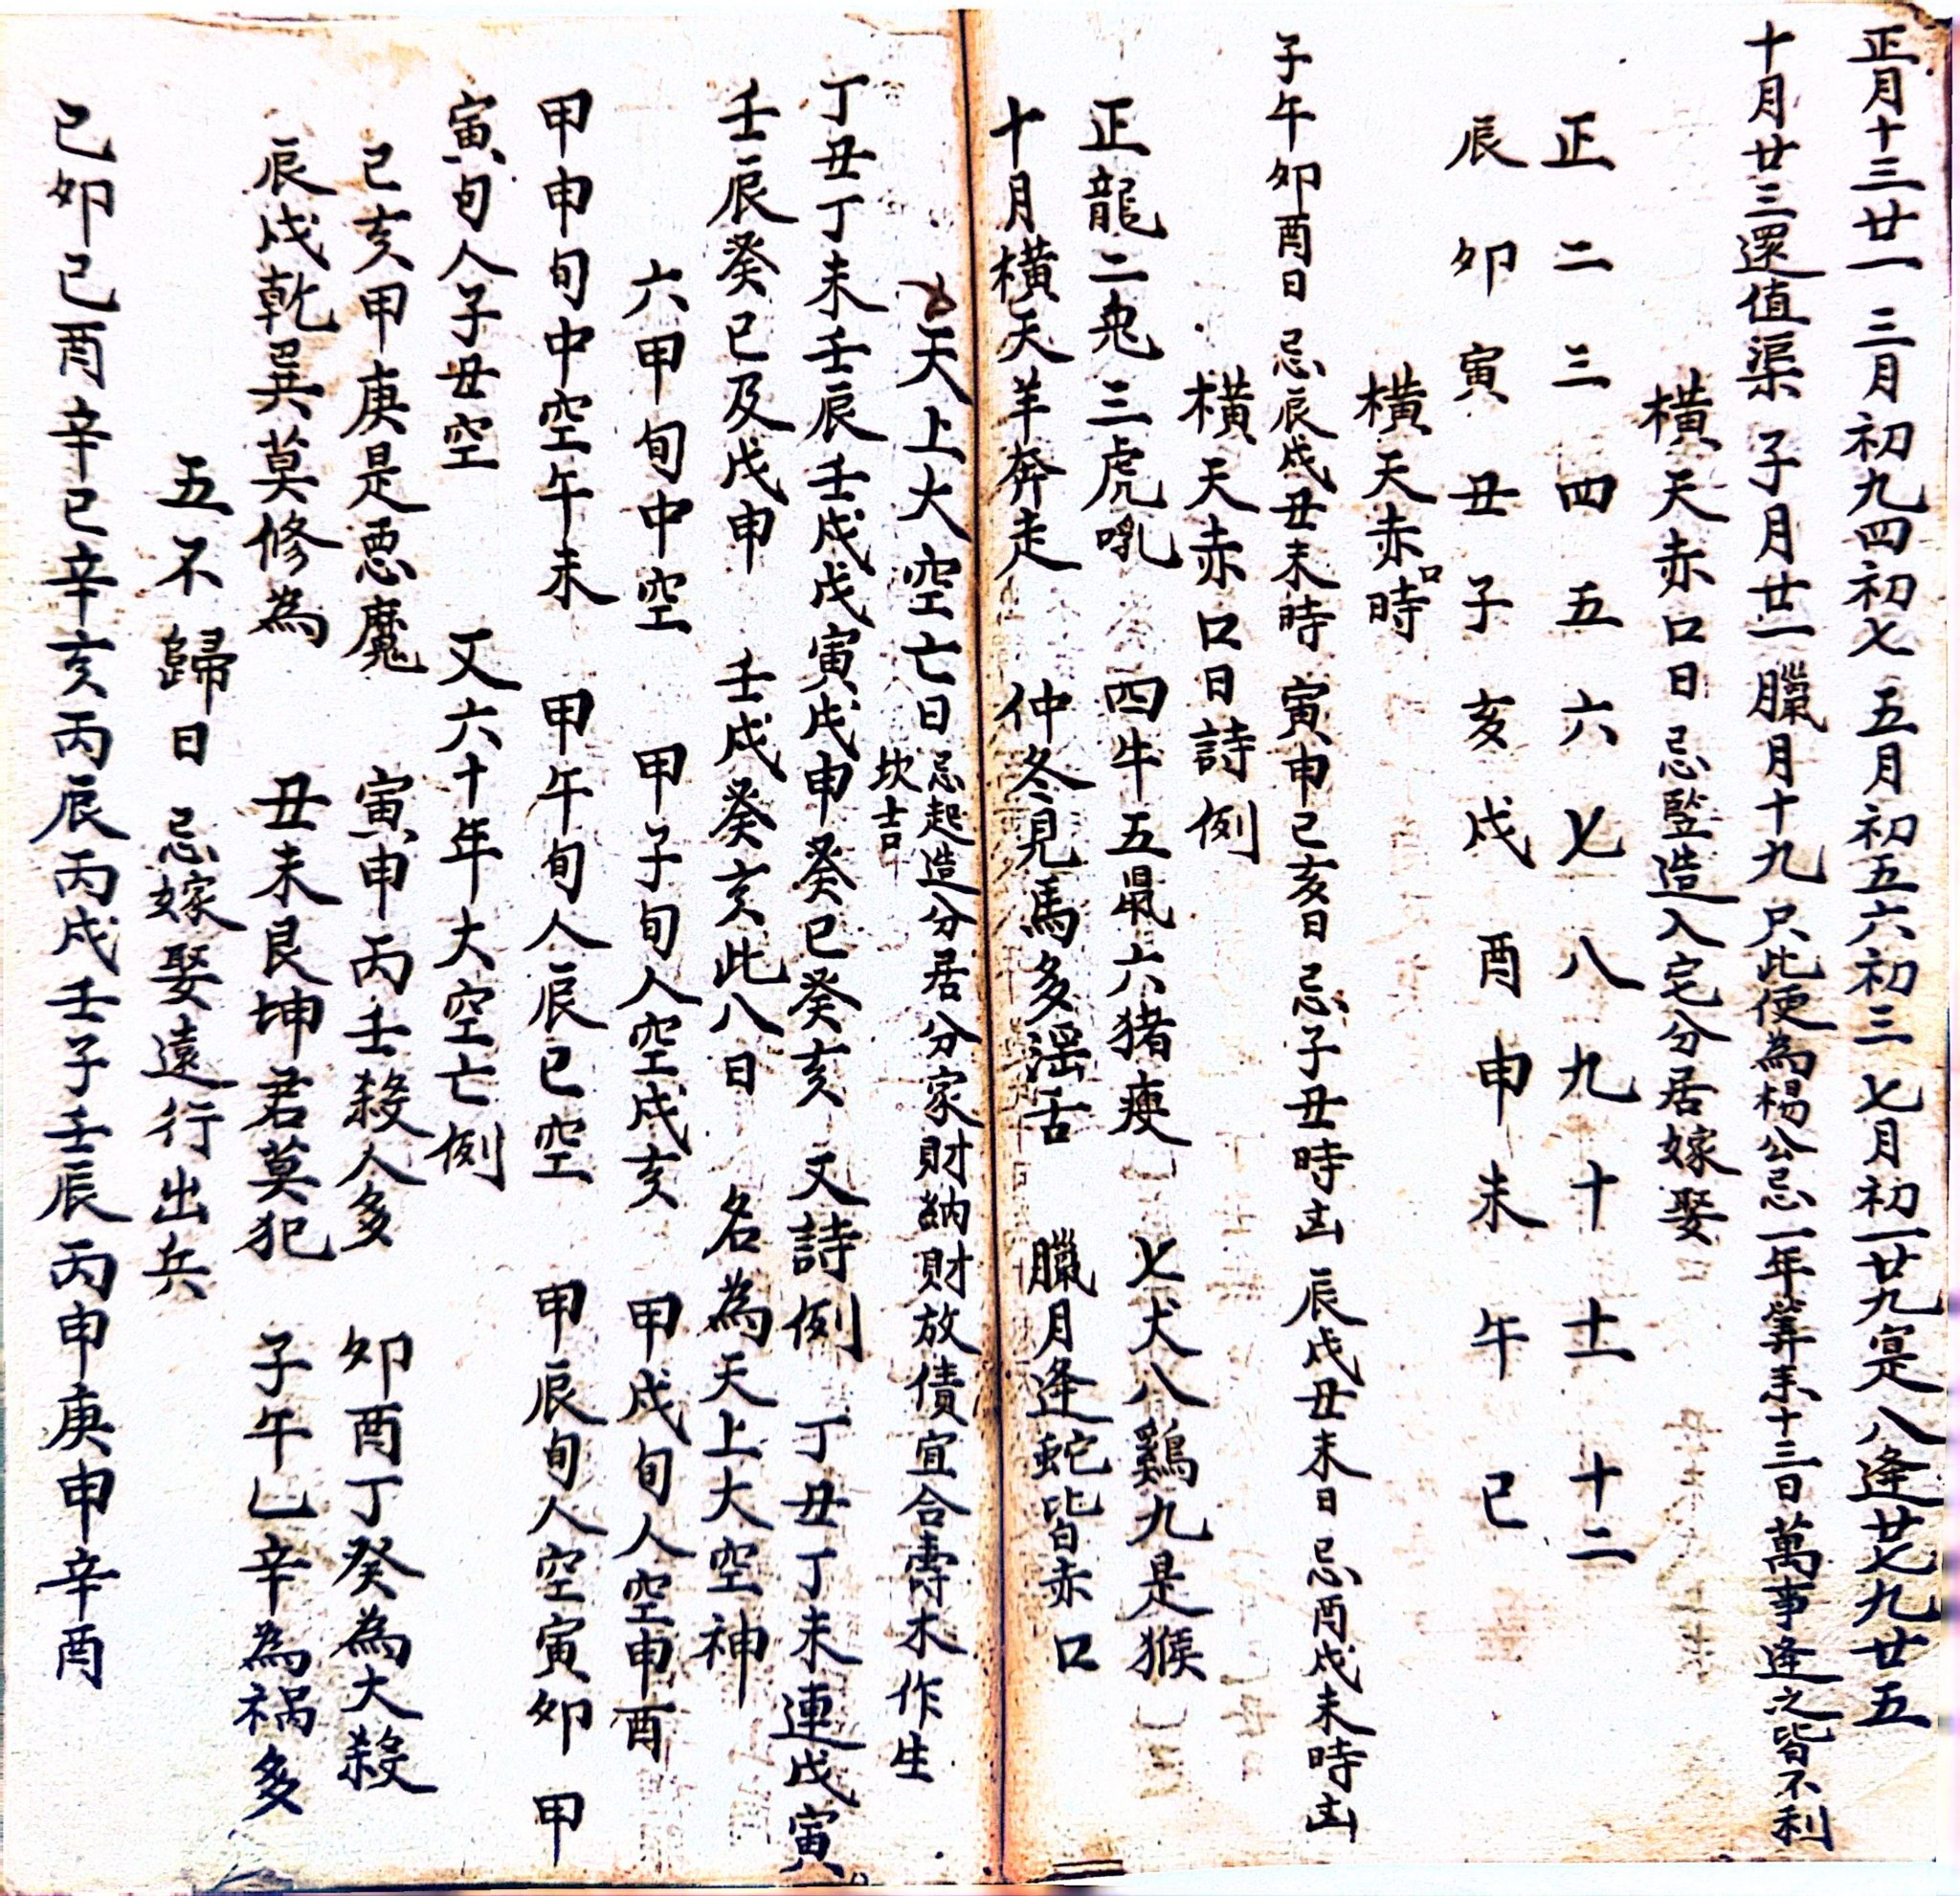 正月十三廿一 三月初九四初七 五月初五六初三 七月初一廿九寔 八逢廿七九廿五
十月廿三還值渠 子月廿一臘月十九 只此便為楊公忌 一年筭来十三日 萬事逢之皆不利
橫天赤口日 忌豎造入宅分居嫁娶
正 二 三 四 五 六 七 八 九 十 十一 十二
辰 卯 寅 丑 子 亥 戌 酉 申 未 午 巳
橫天赤口時
子午卯酉日 忌辰戌丑未時 寅申巳亥日 忌子丑時凶 辰戌丑未日 忌酉戌未時凶
橫天赤口日詩例
正龍二兔三虎吼 四牛五鼠六猪瘦 七犬八鷄九是猴
十月橫天羊奔走 仲冬見馬多滛舌 臘月逢蛇皆赤口
天上大空亡日 忌起造分居分家財納財放債宜合壽木作生
坟吉
丁丑丁未壬辰壬戌戊寅戊申癸巳癸亥 又詩例 丁丑丁未連戊寅
壬辰癸巳及戊申 壬戌癸亥此八日 名為天上大空神
六甲旬中空 甲子旬人空戌亥 甲戌旬人空申酉
甲申旬中空午未 甲午旬人辰巳空 甲辰旬人空寅卯 甲
寅旬人子丑空 又六十年大空亡例
巳亥甲庚是惡魔 寅申丙壬殺人多 卯酉丁癸為大殺
辰戌乾巽莫修為 丑未艮坤君莫犯 子午乙辛為禍多
五不歸日 忌嫁娶遠行出兵
己卯己酉辛巳辛亥丙辰丙戌壬子壬辰丙申庚申辛酉